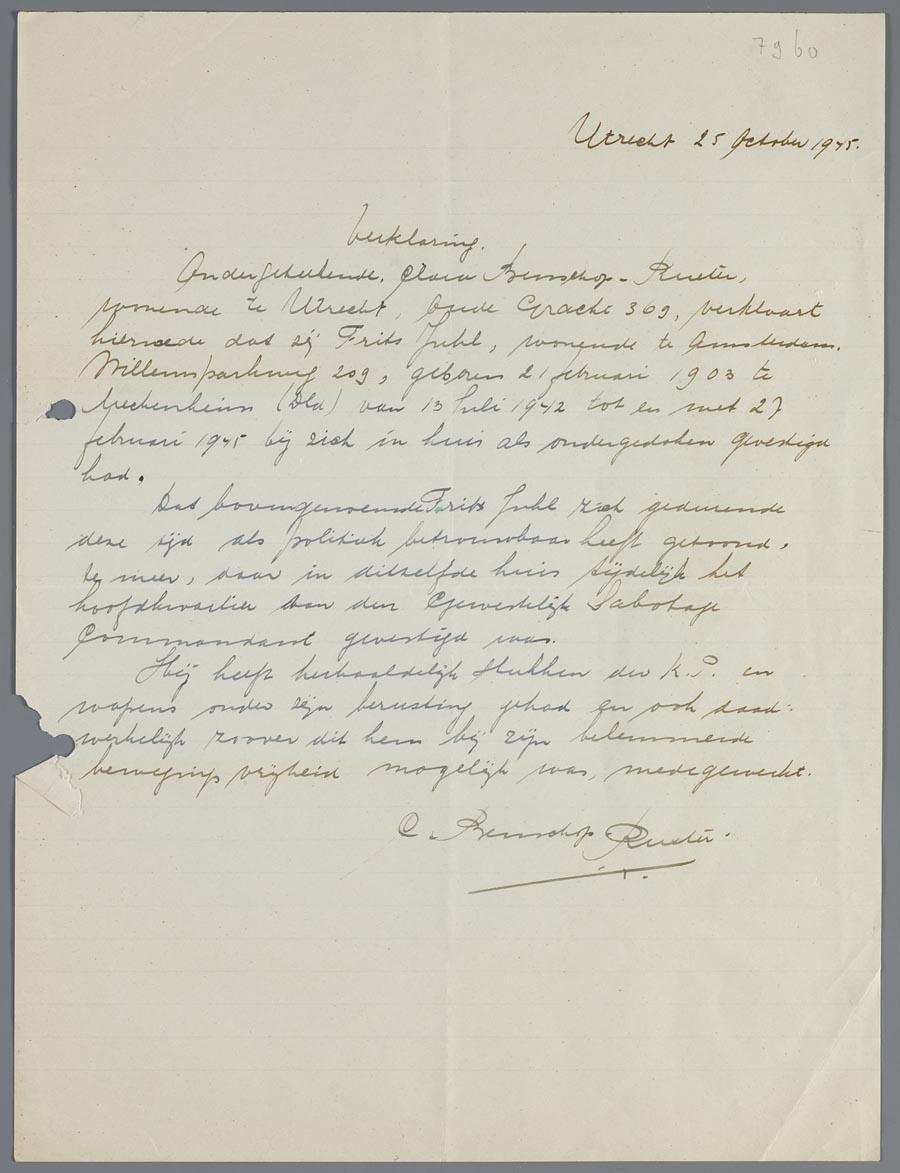 7960
Utrecht 25 October 1945.
Verklaring.
Ondergeteekende, Clara Benschop - Rueter,
wonende te Utrecht, Oude Gracht 369, verklaart
hiermede dat zij Frits Juhl, wonende te Amsterdam.
Willemsparkweg 209, geboren 21 februari 1903 te
Meckenheim (Dld) van 13 Juli 1942 tot en met 27
februari 1945 bij zich in huis als ondergedoken gevestigd
had.
Dat bovengenoemde Frits Juhl zich gedurende
deze tijd als politiek betrouwbaar heeft getoond,
te meer, daar in ditzelfde huis tijdelijk het
hoofdkwartier van den Gewestelijk Sabotage
Commandant gevestigd was.
Hij heeft herhaaldelijk stukken der K.P. en
wapens onder zijn berusting gehad en ook daad-
werkelijk zoover dit hem bij zijn belemmerde
bewegings vrijheid mogelijk was, medegewerkt.
C. Benschop - Rueter.